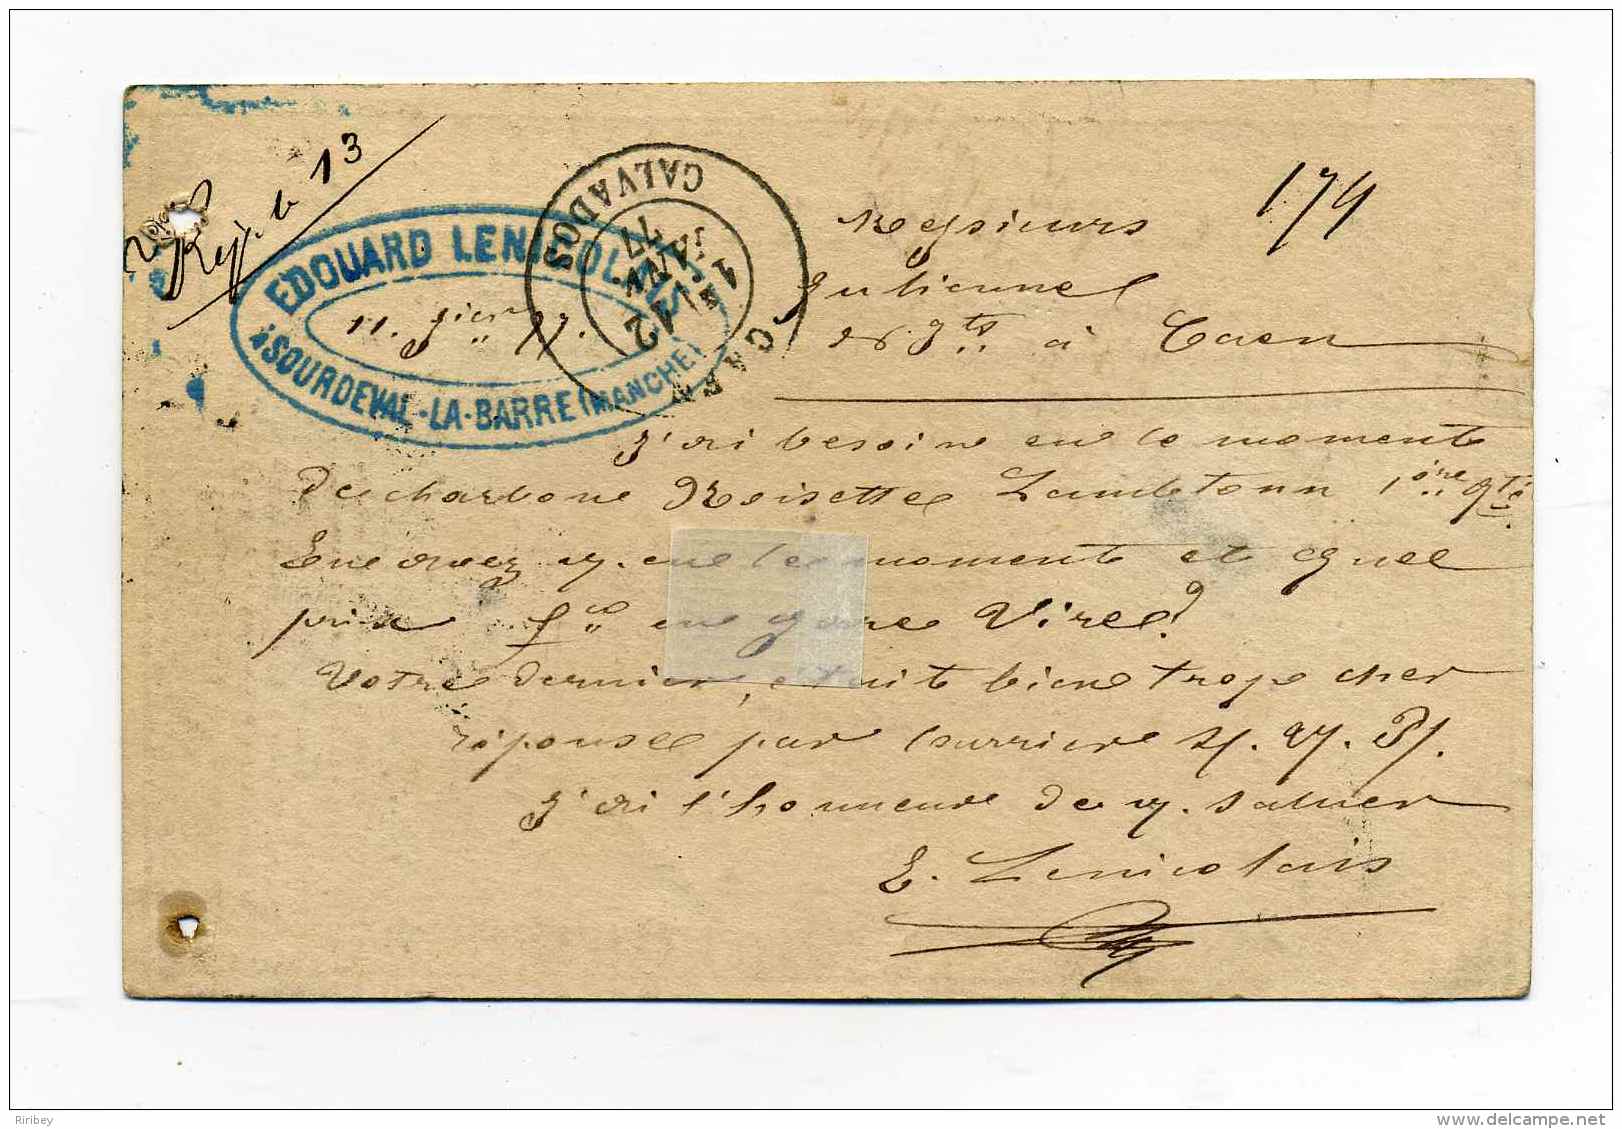 Rep. le 13
174
EDOUARD LENICOLAIS
à SOURDEVAL-LA-BARRE (MANCHE)
11. Jier 77.
CAEN
CALVADOS
12
JANV.
77
Messieurs
Julienne
Ngts à Caen
J'ai besoin en ce moment
De charbon Noisette Lambtonn 1ère Qté
En avez v. en ce moment et quel
prix fco en gare Vire?
Votre dernier, était bien trop cher
réponse par Courrier s.v.P.
J'ai l'honneur de v. saluer
E. Lenicolais
Riribey
delcampe.net